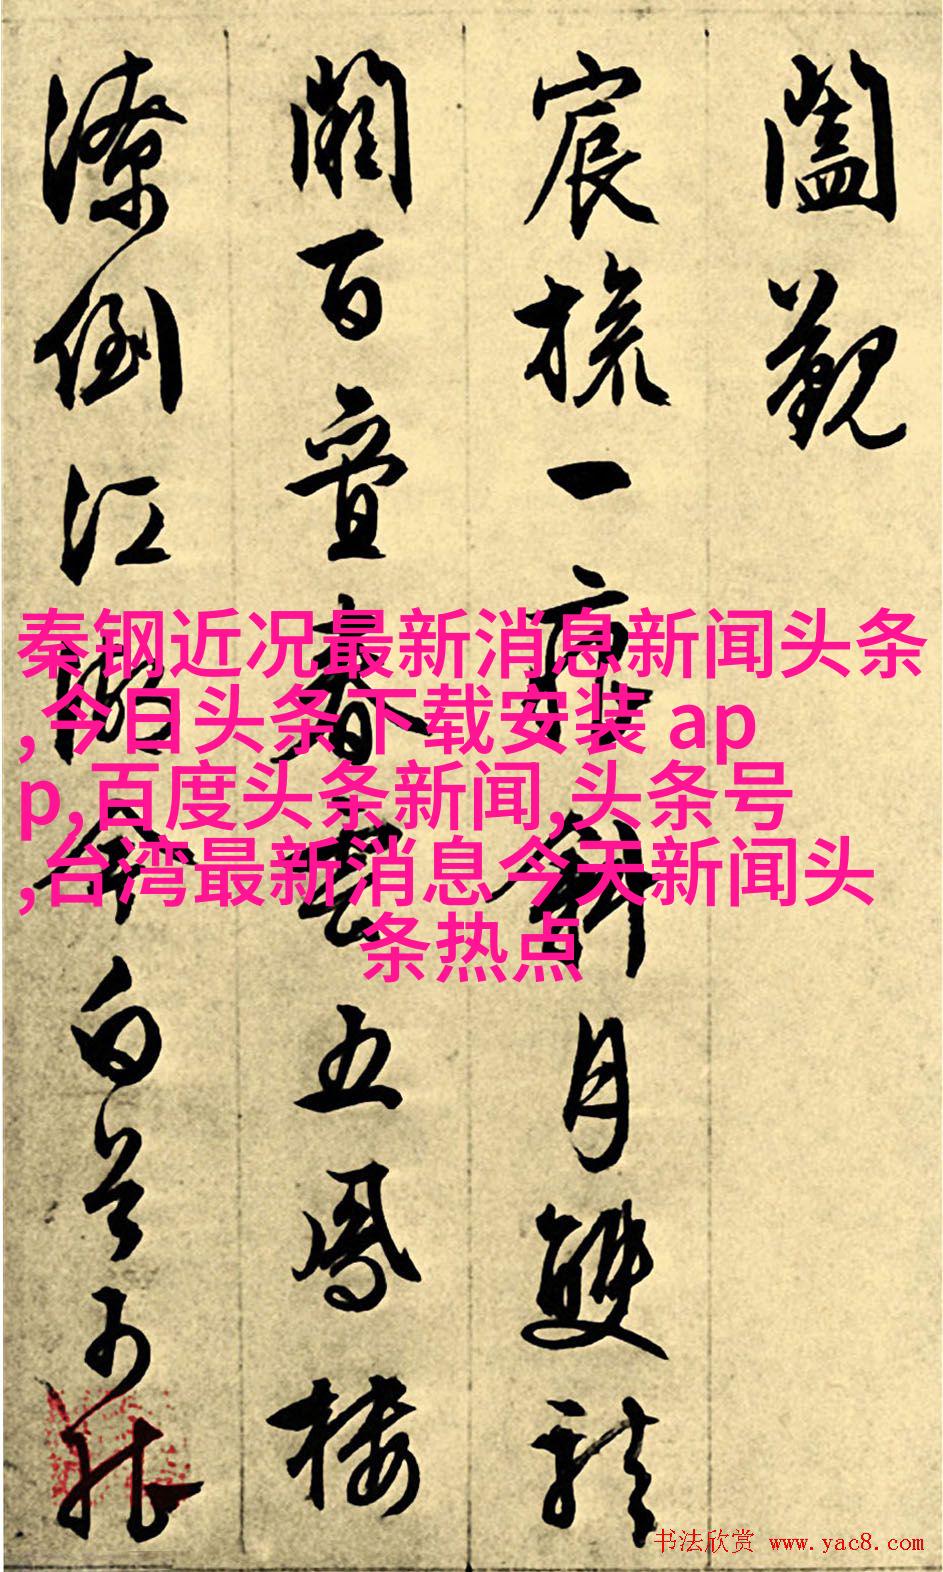 闔覲
宸旒一痕斜月雙龍
闕百疊春雲五鳳樓
潦倒江湖今白首可能
秦钢近况最新消息新闻头条
,今日头条下载安装 ap
p,百度头条新闻,头条号
,台湾最新消息今天新闻头
条热点
书法欣赏 www.yac8.com